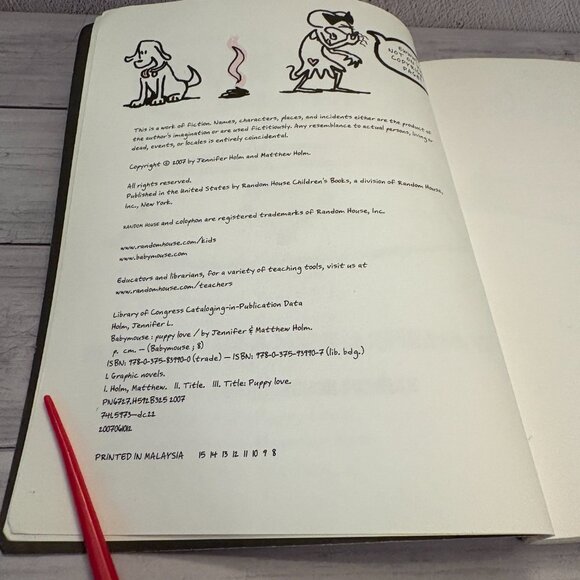 EWWW!
NOT ON THE
COPYRIGHT
PAGE!
This is a work of fiction. Names, characters, places, and incidents either are the product of
the author's imagination or are used fictitiously. Any resemblance to actual persons, living or
dead, events, or locales is entirely coincidental.
Copyright © 2007 by Jennifer Holm and Matthew Holm.
All rights reserved.
Published in the United States by Random House Children's Books, a division of Random House,
Inc., New York.
RANDOM HOUSE and colophon are registered trademarks of Random House, Inc.
www.randomhouse.com/kids
www.babymouse.com
Educators and librarians, for a variety of teaching tools, visit us at
www.randomhouse.com/teachers
Library of Congress Cataloging-in-Publication Data
Holm, Jennifer L.
Babymouse : puppy love / by Jennifer & Matthew Holm.
p. cm. — (Babymouse ; 8)
ISBN: 978-0-375-83990-0 (trade) — ISBN: 978-0-375-93990-7 (lib. bdg.)
1. Graphic novels.
I. Holm, Matthew. II. Title. III. Title: Puppy love.
PN6727.H592B325 2007
741.5'973—dc22
2007061012
PRINTED IN MALAYSIA 15 14 13 12 11 10 9 8